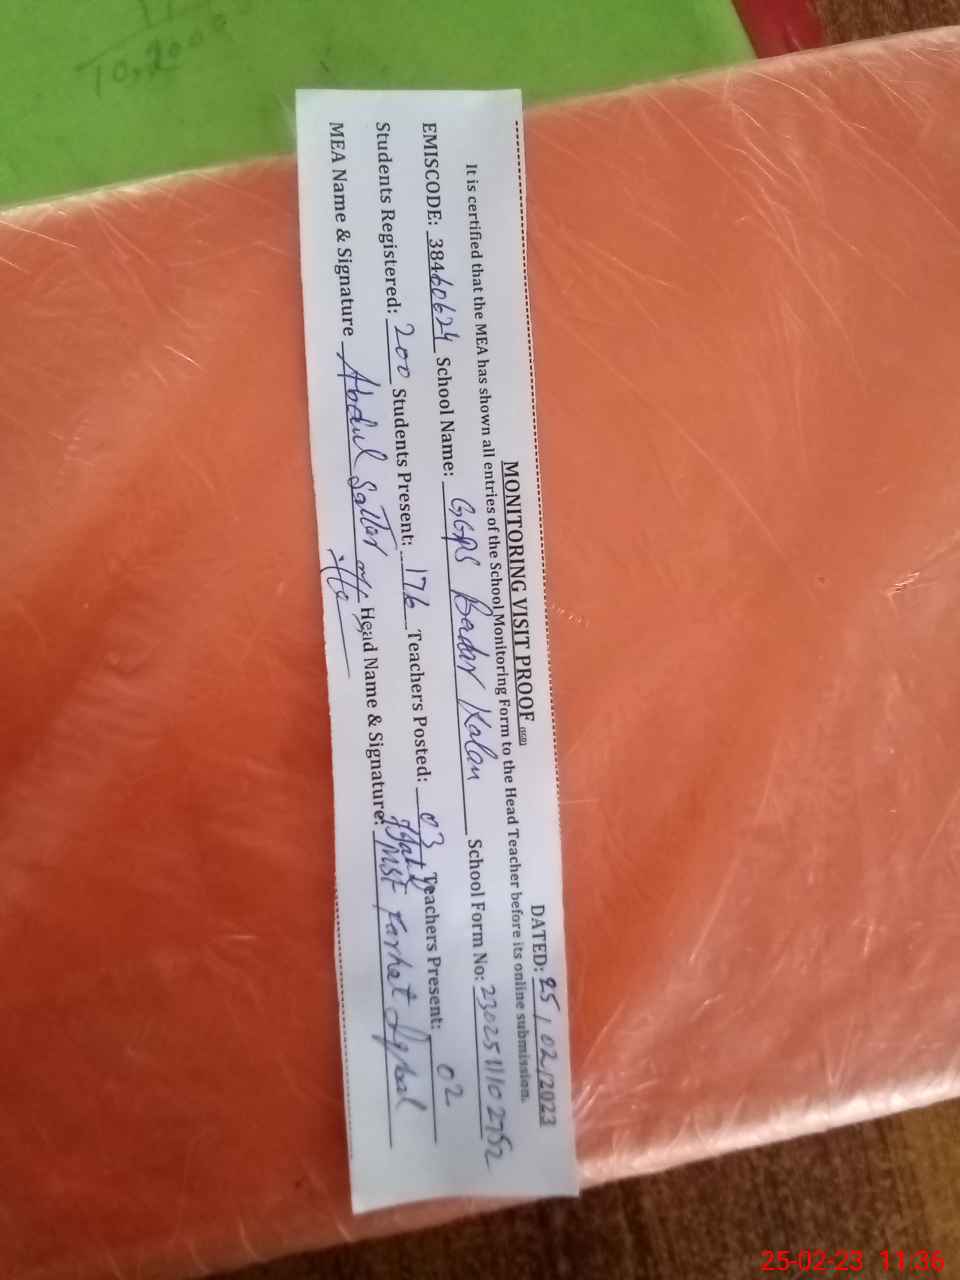 MONITORING VISIT PROOF
DATED: 25/02/2023
It is certified that the MEA has shown all entries of the School Monitoring Form to the Head Teacher before its online submission.
EMISCODE: 38460624 School Name: GGPS Badar Kalan School Form No: 230251102752
Students Registered: 200 Students Present: 176 Teachers Posted: 03 Teachers Present: 02
MEA Name & Signature Abdul Sattar Head Name & Signature: MST Farhat Iqbal
25-02-23 11:36